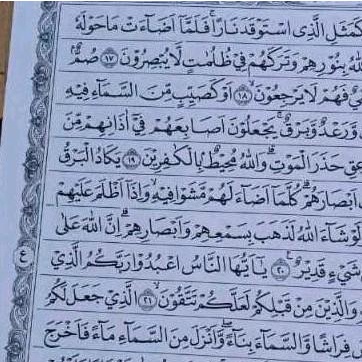 كَمَثَلِ الَّذِى اسْتَوْقَدَ نَارًا ۚ فَلَمَّآ اَضَآءَتْ مَا حَوْلَهٗ
اللّٰهُ بِنُوْرِهِمْ وَتَرَكَهُمْ فِيْ ظُلُمٰتٍ لَّا يُبْصِرُوْنَ ۝١٧ صُمٌّۢ
فَهُمْ لَا يَرْجِعُوْنَ ۝١٨ اَوْ كَصَيِّبٍ مِّنَ السَّمَآءِ فِيْهِ
وَّرَعْدٌ وَّبَرْقٌ ۚ يَجْعَلُوْنَ اَصَابِعَهُمْ فِيْٓ اٰذَانِهِمْ مِّنَ
حَذَرَ الْمَوْتِ ۗ وَاللّٰهُ مُحِيْطٌۢ بِالْكٰفِرِيْنَ ۝١٩ يَكَادُ الْبَرْقُ
اَبْصَارَهُمْ ۗ كُلَّمَآ اَضَآءَ لَهُمْ مَّشَوْا فِيْهِ ۙ وَاِذَآ اَظْلَمَ عَلَيْهِمْ
شَآءَ اللّٰهُ لَذَهَبَ بِسَمْعِهِمْ وَاَبْصَارِهِمْ ۗ اِنَّ اللّٰهَ عَلٰى
شَيْءٍ قَدِيْرٌ ۝٢٠ يٰٓاَيُّهَا النَّاسُ اعْبُدُوْا رَبَّكُمُ الَّذِيْ
وَالَّذِيْنَ مِنْ قَبْلِكُمْ لَعَلَّكُمْ تَتَّقُوْنَ ۝٢١ الَّذِيْ جَعَلَ لَكُمُ
فِرَاشًا وَّالسَّمَآءَ بِنَآءً ۖ وَّاَنْزَلَ مِنَ السَّمَآءِ مَآءً فَاَخْرَجَ
ع